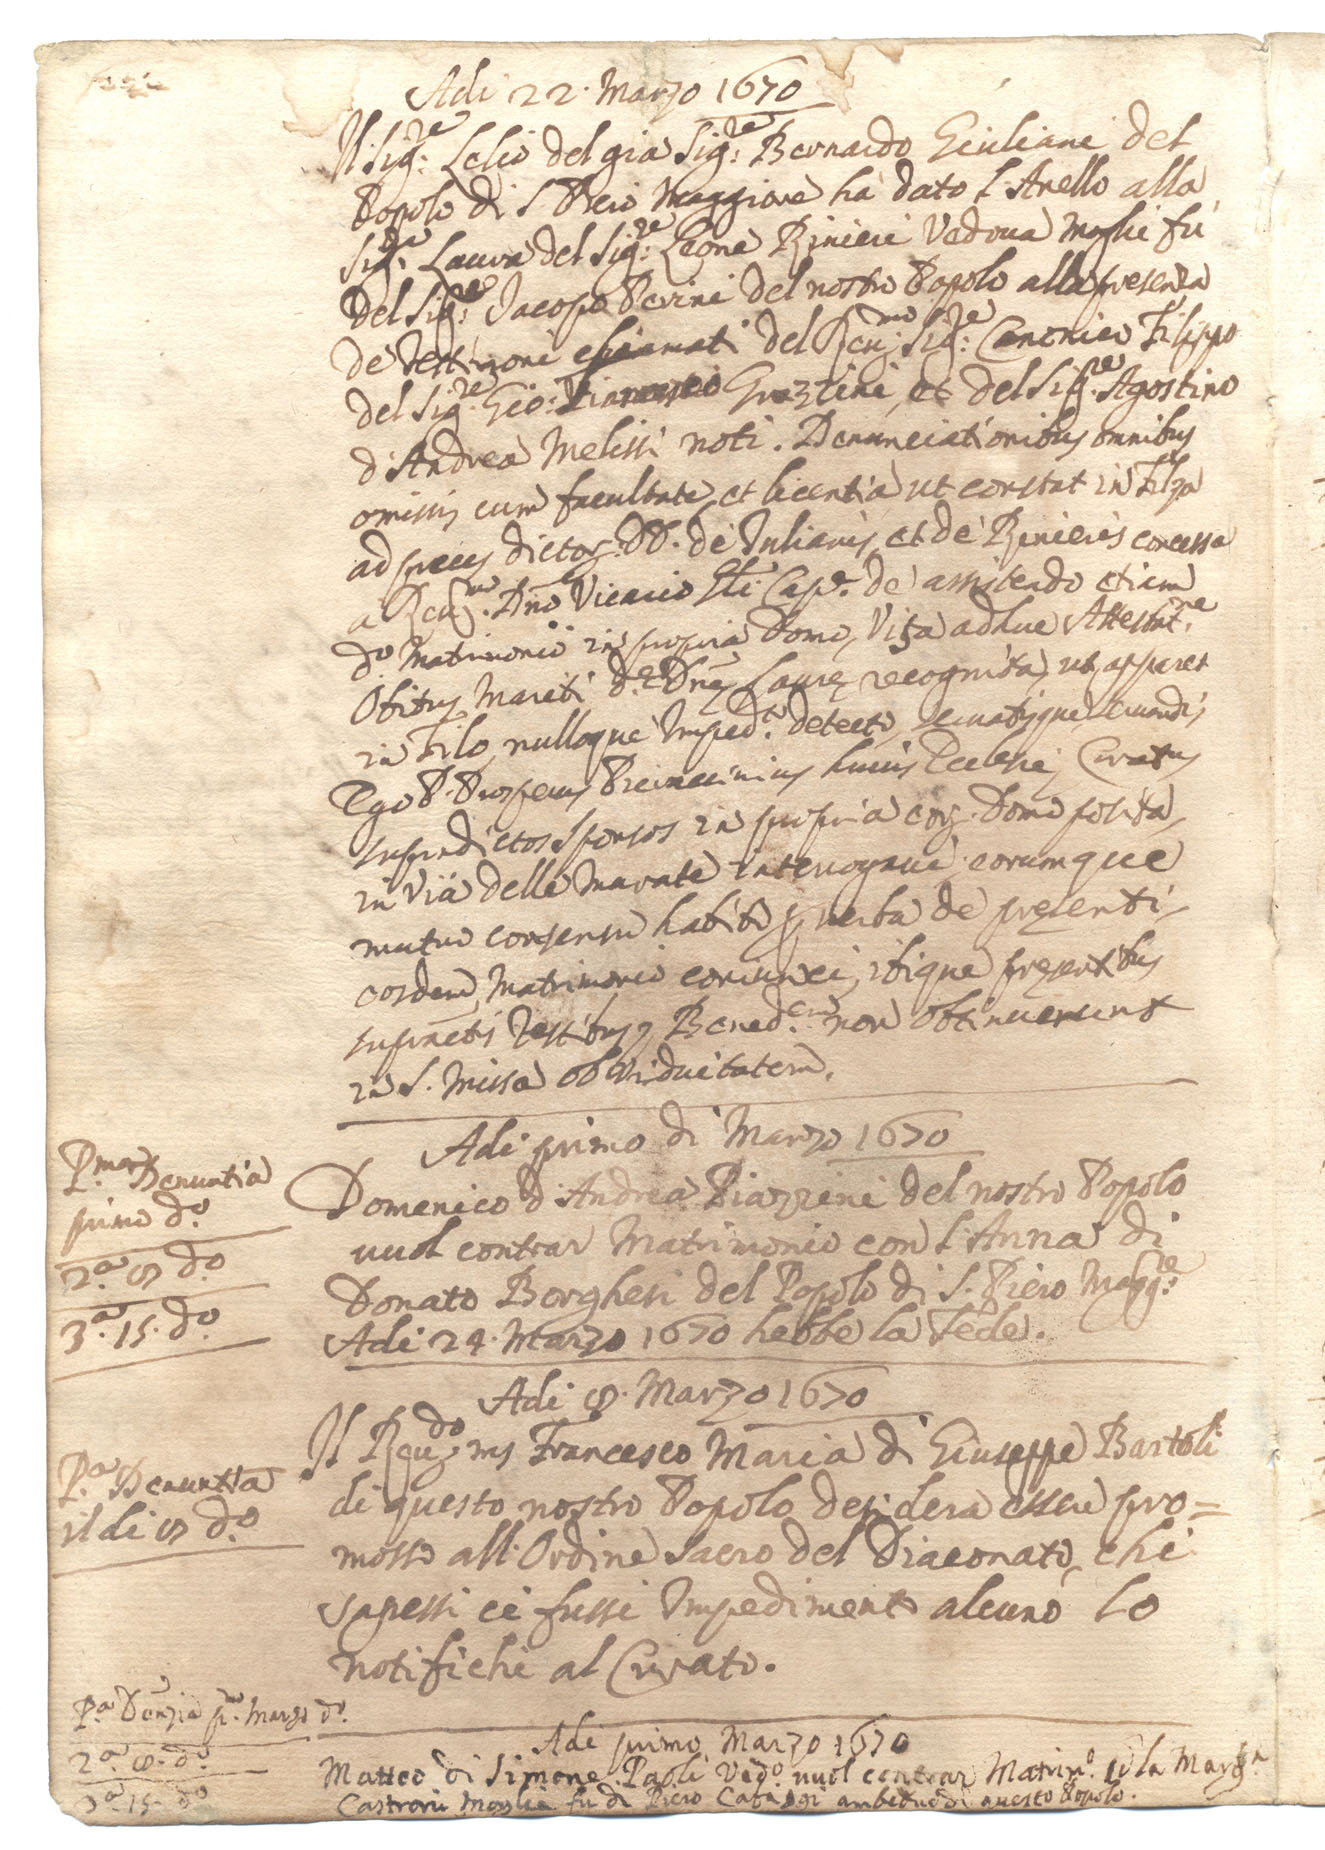 Adi 22. Marzo 1670
Il Sig:re Lelio del già Sig:re Bernardo Giuliani del
Popolo di S Piero Maggiore ha dato l'Anello alla
Sig:ra Laura del Sig:re Leone Rinieri Vedova moglie fu
del Sig:re Jacopo Perini del nostro Popolo alla presenza
de Testimoni chiamati del Reu:mo Sig:re Canonico Filippo
del Sig:re Gio: Grazzini, et del Sig:re Agostino
d'Andrea Melissi noti. Denunciationibus omnibus
omissis cum facultate, et licentia ut constat in Filza
ad preces dictor: DD. de Iulianis, et de Rinieris concessa
a Reu:mo Dno Vicario Cap. de assistendo etiam
d:o Matrimonio in propria Domo, Visa adhuc Attestat:ne
Obitus Mariti d:e Dne Laure recognita, ut apparet
in Filo, nulloque Imped:to detecto, servatisque servandis
Ego P. Prosperus huius Ecclesie Curatus
supradictos Sponsos in propria eor. Domo posita
in Via delle Marate interrogaui, eorumque
mutuo consensu habito p verba de presenti
eosdem Matrimonio coniunxi, ibique presentibus
supractis Testibus, Bened:em non obtinuerunt
in S. Missa ob Viduitatem.
Adi primo di Marzo 1670
P:ma Denuntia
primo d:o
2:a 8 d:o
3:a 15. d:o
Domenico d'Andrea Piazzini del nostro Popolo
vuol contrar Matrimonio con l'Anna di
Donato Borghesi del Popolo di S. Piero Magg:re
Adi 24. Marzo 1670 hebbe la Fede.
Adi 8. Marzo 1670
P:a Denuntia
il di 8 d:o
Il Reu:do ms Francesco Maria di Giuseppe Bartoli
di questo nostro Popolo desidera esser pro=
mosso all'Ordine Sacro del Diaconato, chi
sapessi ci fussi Impedimento alcuno lo
notifichi al Curato.
P:a Denzia p:mo Marzo d:o
2:a 8. d:o
3:a 15. d:o
Adi primo Marzo 1670
Matteo di Simone Paoli Ved:o vuol contrar Matrim:o la Marg:ta
Moglie fu di Piero ambiduo di questo Popolo.